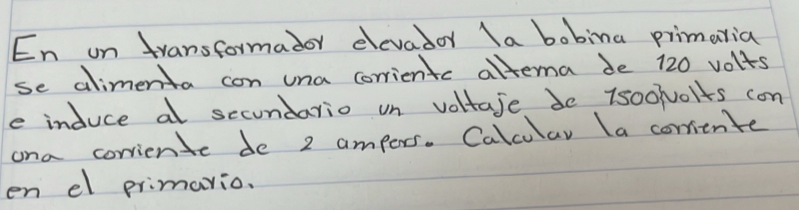 En un transformador elevador la bobina primaria
se alimenta con una corriente alterna de 120 volts
e induce al secundario un voltaje de 1500 volts con
una corriente de 2 ampers. Calcular la corriente
en el primario.